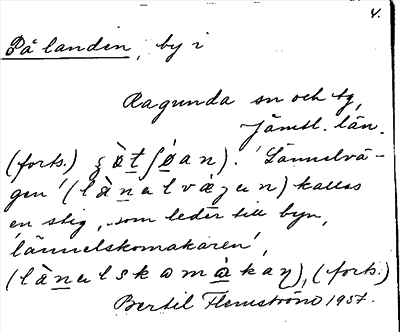 4.
På landen, by i
Ragunda sn och tg,
Jämtl. län.
(forts.) 'Lännelvä-
gen' (lànalvàgen) kallas
en stig, som leder till byn,
'lännelskomakaren',
(lànalskomàkaŋ), (forts.)
Bertil Flemström 1937.